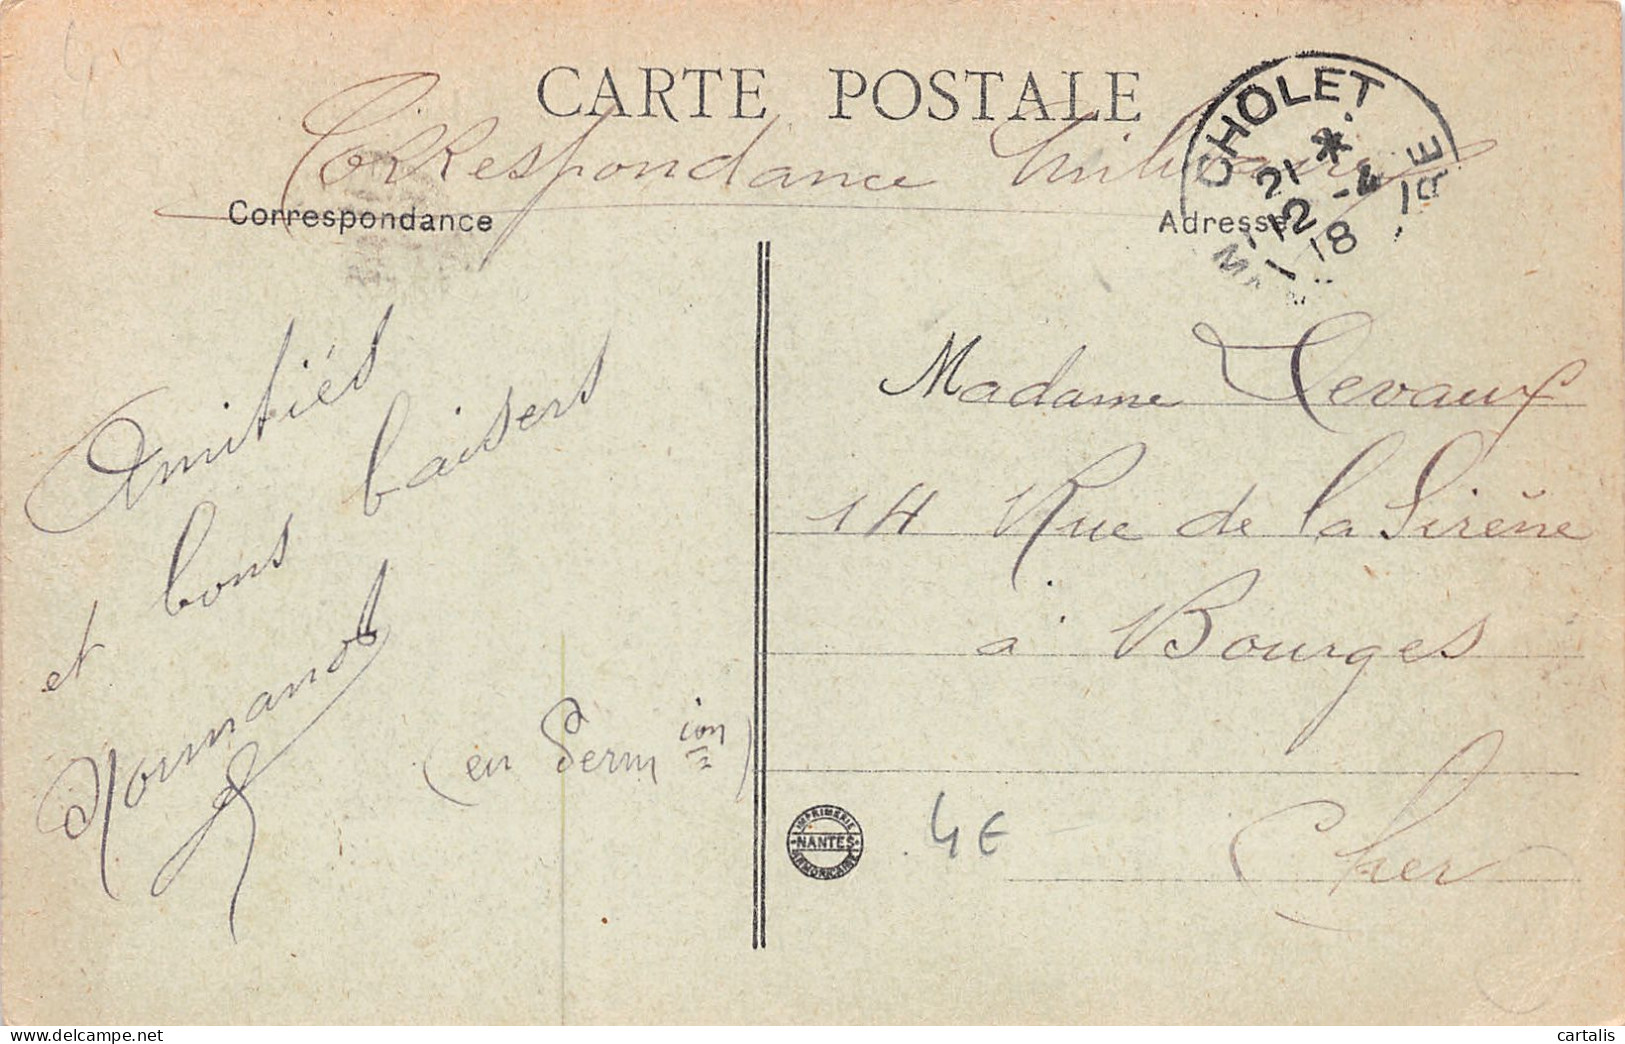 CARTE POSTALE
Correspondance Militaire
Correspondance
Adresse
CHOLET
21 *
12 -4
18
Amitiés
et bons baisers
Normand
(en Permion)
Madame Devaux
14 Rue de la Sirène
à Bourges
Cher
IMPRIMERIE
NANTES
ARMORICAINE
4€
cartalis